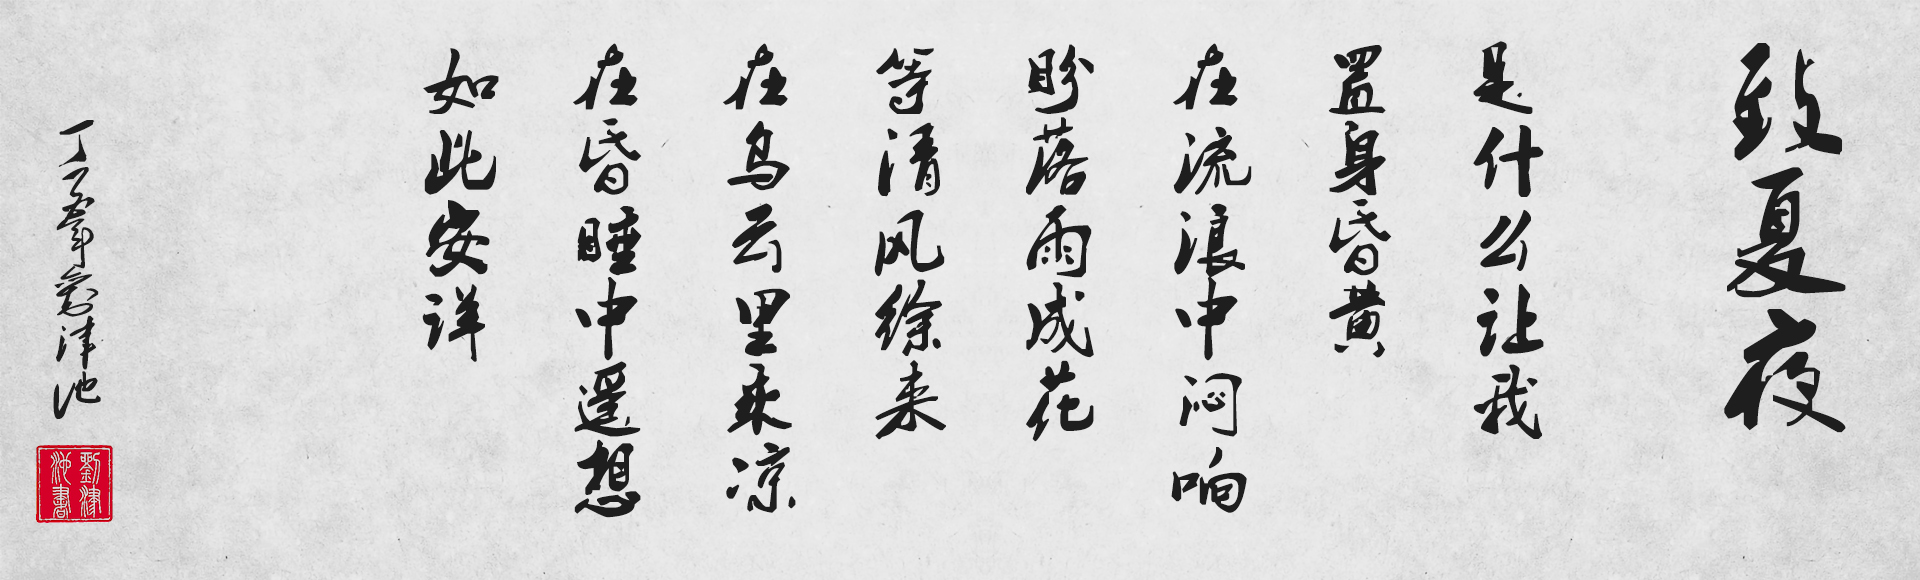 致夏夜
是什么让我
置身昏黄
在流浪中闷响
盼落雨成花
等清风徐来
在乌云里乘凉
在昏睡中遥想
如此安详
劉津池
劉津池書